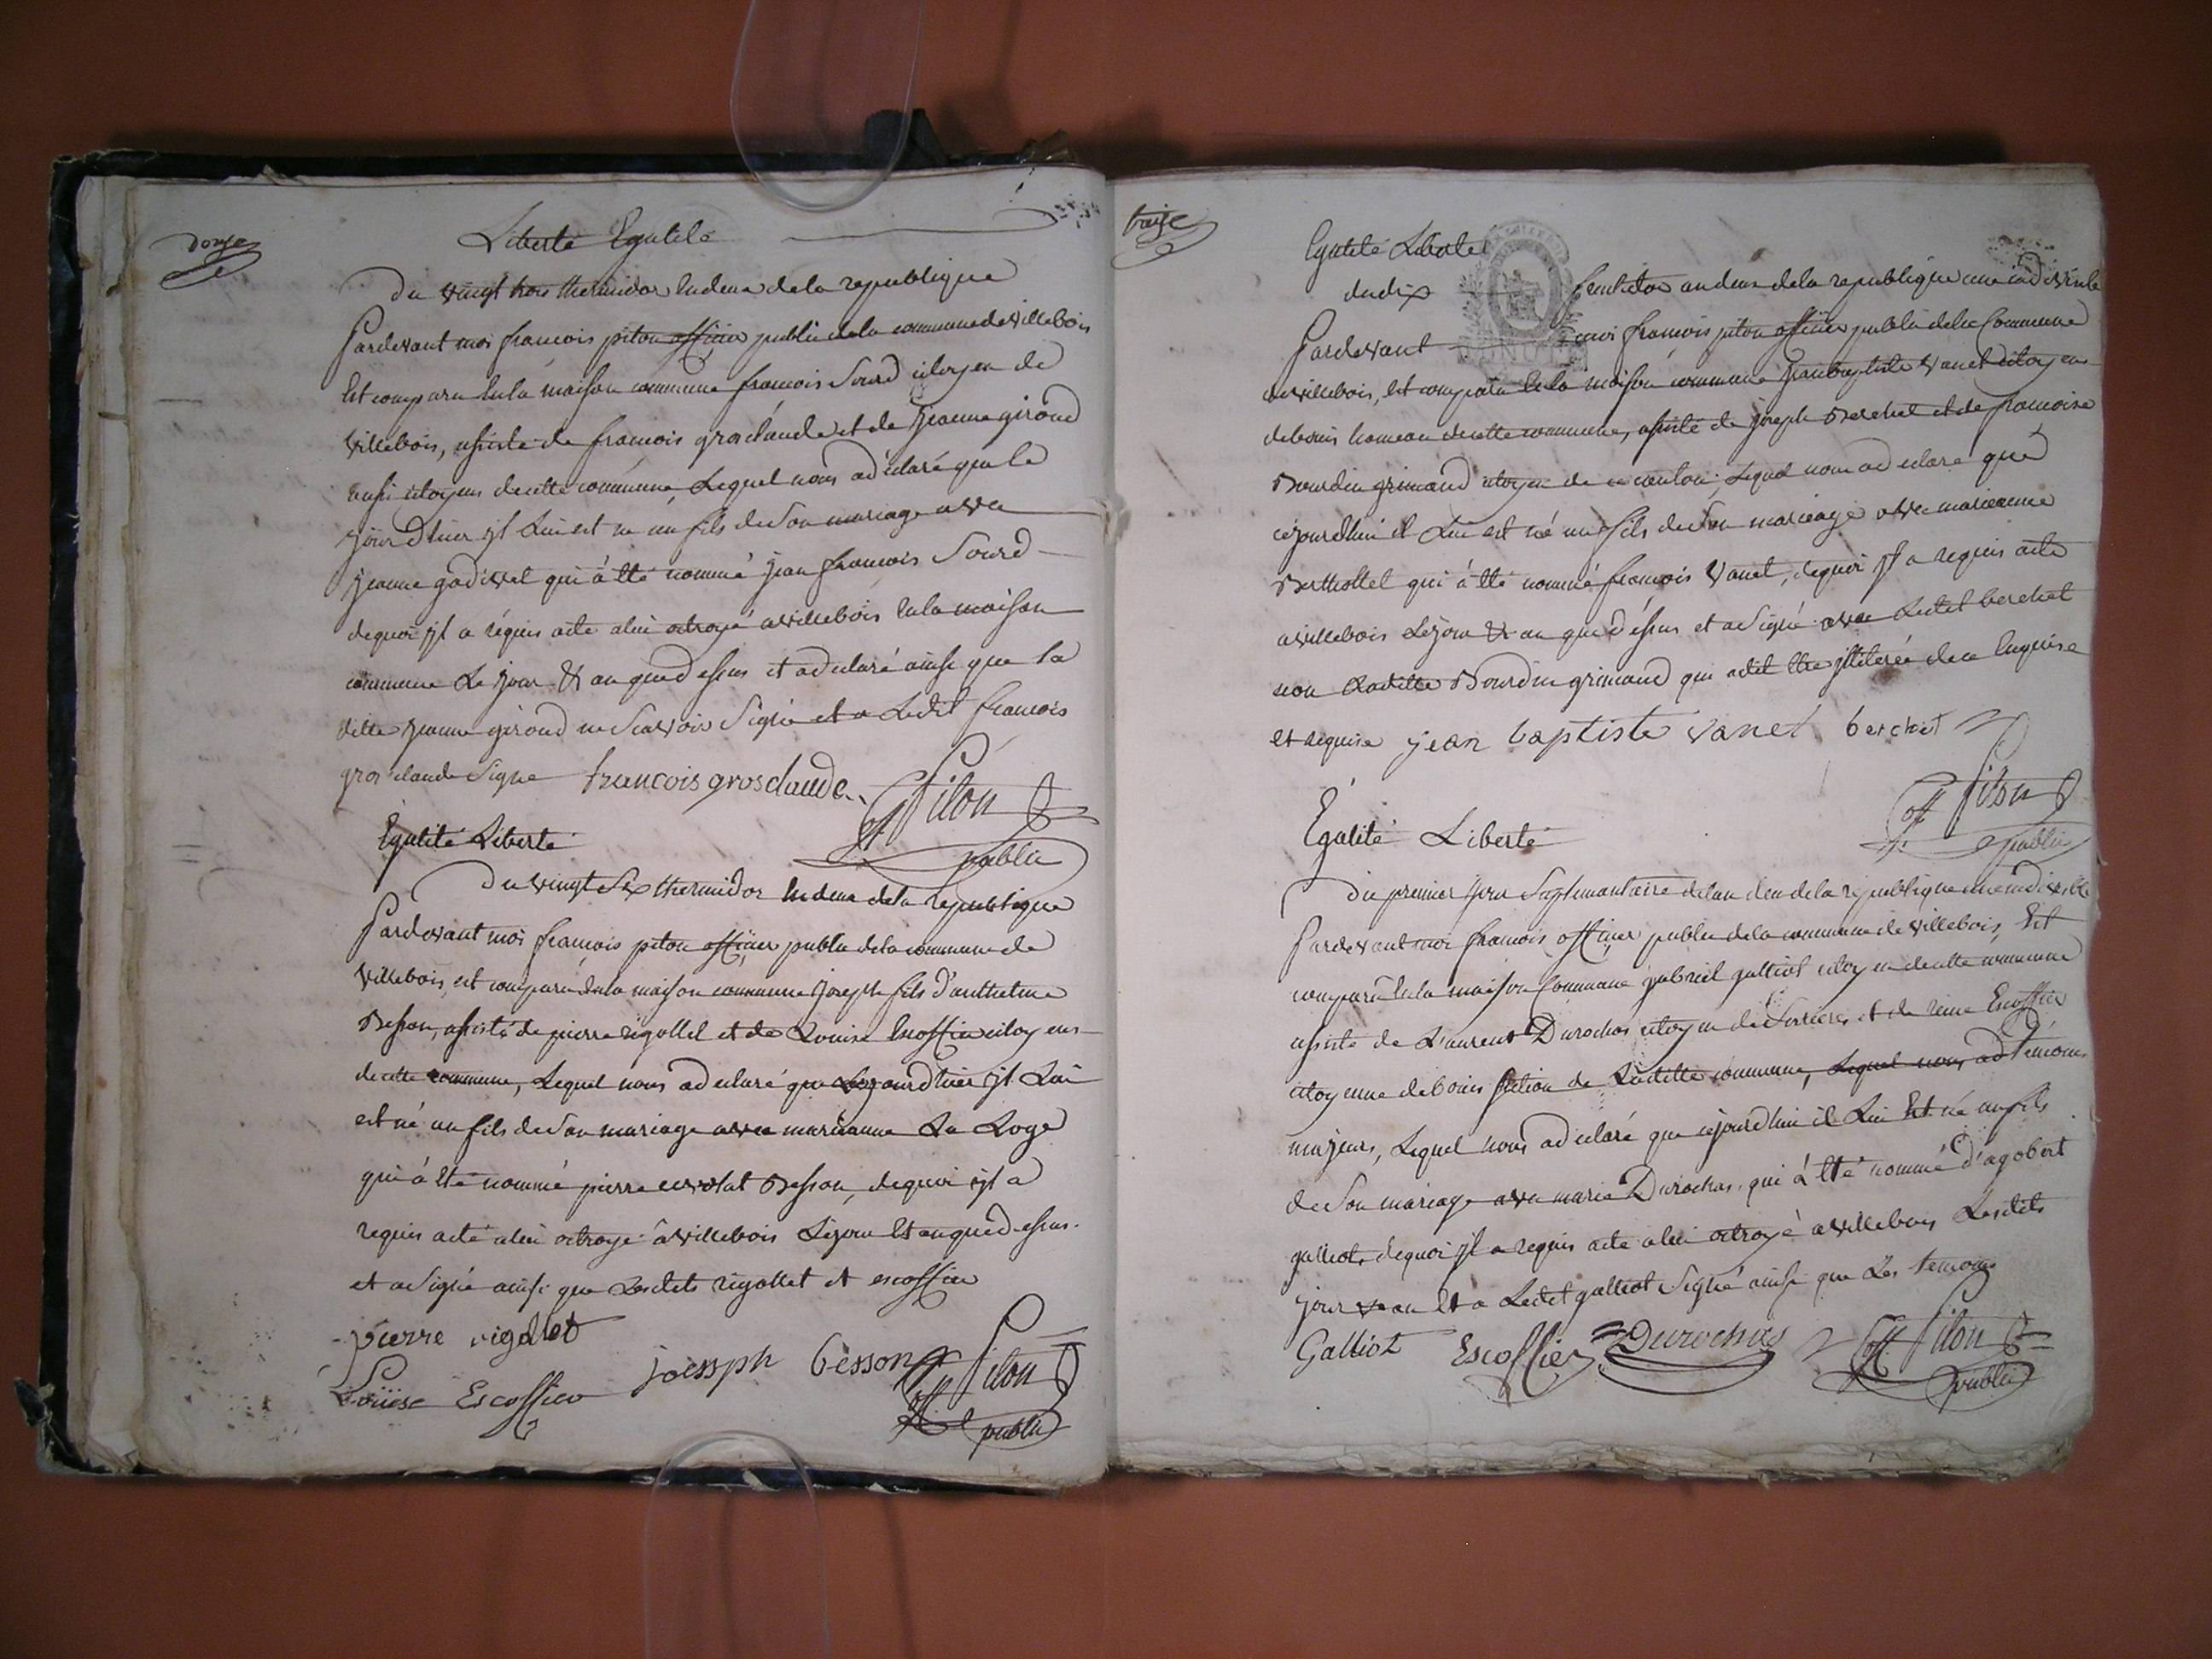 douze
Liberté Egalité
Du vingt trois thermidor lan deux de la republique
Pardevant moi francois piton officier public de la commune de villebois
Est comparu en la maison commune francois Sourd citoyen de
villebois, assisté de francois grosclaude et de Jeanne giroud
aussi citoyens de cette commune, Lequel nous a déclaré que ce
jourdhuer jl Lui est né un fils de Son mariage avec
Jeanne godivet qui à été nommé jean francois Sourd
dequoi jl a réquis acte alui octroyé avillebois en la maison
commune Le jour & an que dessus et a déclaré ainsi que la
ditte jeanne giroud ne Scavoir Signer et a Ledit francois
grosclaude Signé francois grosclaude
Piton off public
Egalité Liberté
Du vingt Six thermidor lan deux dela republique
Pardevant moi françois piton officier public dela commune de
villebois, est comparu en la maison commune joseph fils d'anthelme
Besson, assisté de pierre rigollet et de Louise Escoffier citoyens
de cette commune, Lequel nous a déclaré que Cejourdhuer jl Lui
est né un fils de Son mariage avec marieanne La Loge
qui à été nommé pierre Besson, dequoi jl a
requis acte alui octroyé àvillebois Lejour Et an que dessus
et a Signé ainsi que Lesdits rigollet et escoffier
pierre rigollet
joessph besson
Piton off public
Louise Escoffier
treize
Egalité Liberté
du dix fructidor an deux dela republique une indivisible
Pardevant moi françois piton officier public dela Commune
de villebois, Est comparu En la maison commune Jeanbaptiste vanet citoyen
debouis hameau decette commune, assisté de joseph Berchet et de francoise
Bourdin grimaud citoyen de ce canton, Lequel nous a déclaré que
cejourdhui il Lui est né un fils de Son mariage avec marieanne
Berthollet qui à été nommé françois Vanet, dequoi jl a requis acte
avillebois Lejour & an que dessus et a Signé avec Ledit berchet
non Laditte Bourdin grimaud qui a dit Etre jlliterée de ce Enquise
et requise jean baptiste vanet berchet
Piton off public
Egalité Liberté
Du premier jour Suplimantaire delan deu dela republique une indivisible
Pardevant moi francois officier public dela commune de villebois, Est
comparu En la maison Commune gabriel galliot citoyen de cette commune
assisté de Laurent Durochas citoyen de Serrieres et de reine Escoffier
citoyenne debouis Section de Laditte commune, Lequel nous a d temoins
majeurs, Lequel nous a déclaré que cejourdhui il Lui Est né un fils
de Son mariage avec marie Durochas, qui à été nommé d'agobert
galliot, dequoi jl a requis acte alui octroyé avillebois Lesdits
jour & an Et a Ledit galliot Signé ainsi que Les temoins
Galliot Escoffier Durochas Piton off public